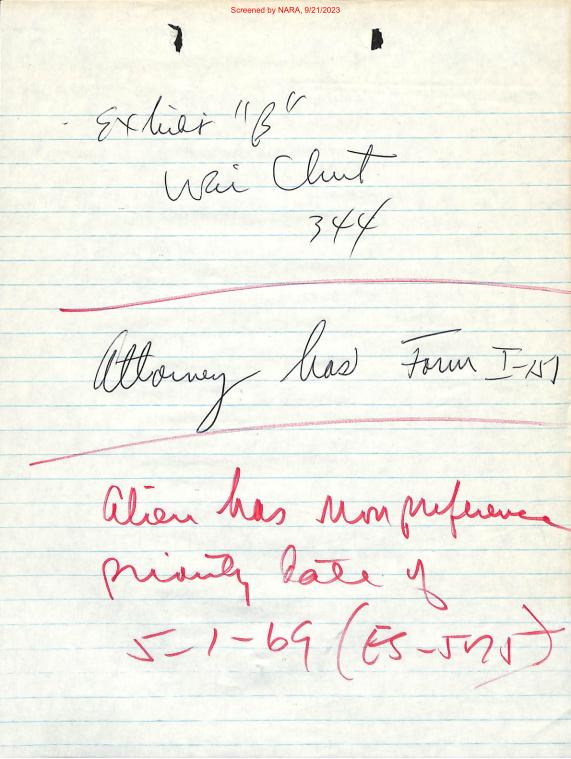 Screened by NARA, 9/21/2023
Exhibit "B"
344
Attorney has Form I-151
Alien has nonpreference
priority date of
5-1-69 (ES-575)